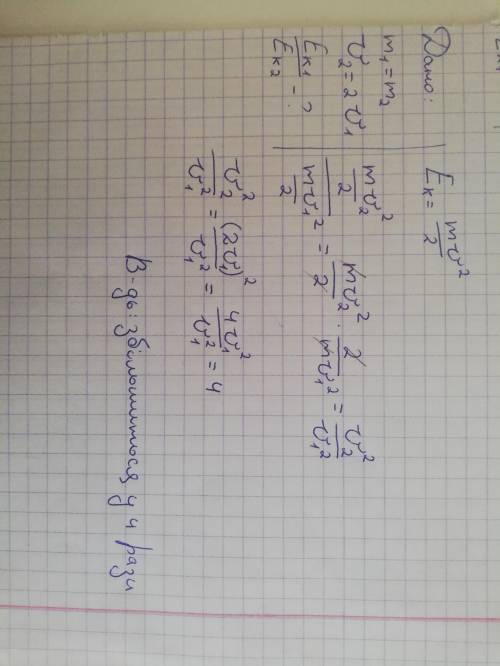 Дано:
m₁ = m₂
v₂ = 2 v₁
Eк₁/Eк₂ - ?
Eк = mv²/2
(mv₂²/2)/(mv₁²/2) = mv₂²/2 · 2/mv₁² = v₂²/v₁²
v₂²/v₁² = (2v₁)²/v₁² = 4v₁²/v₁² = 4
В-дь: збільшиться у 4 рази